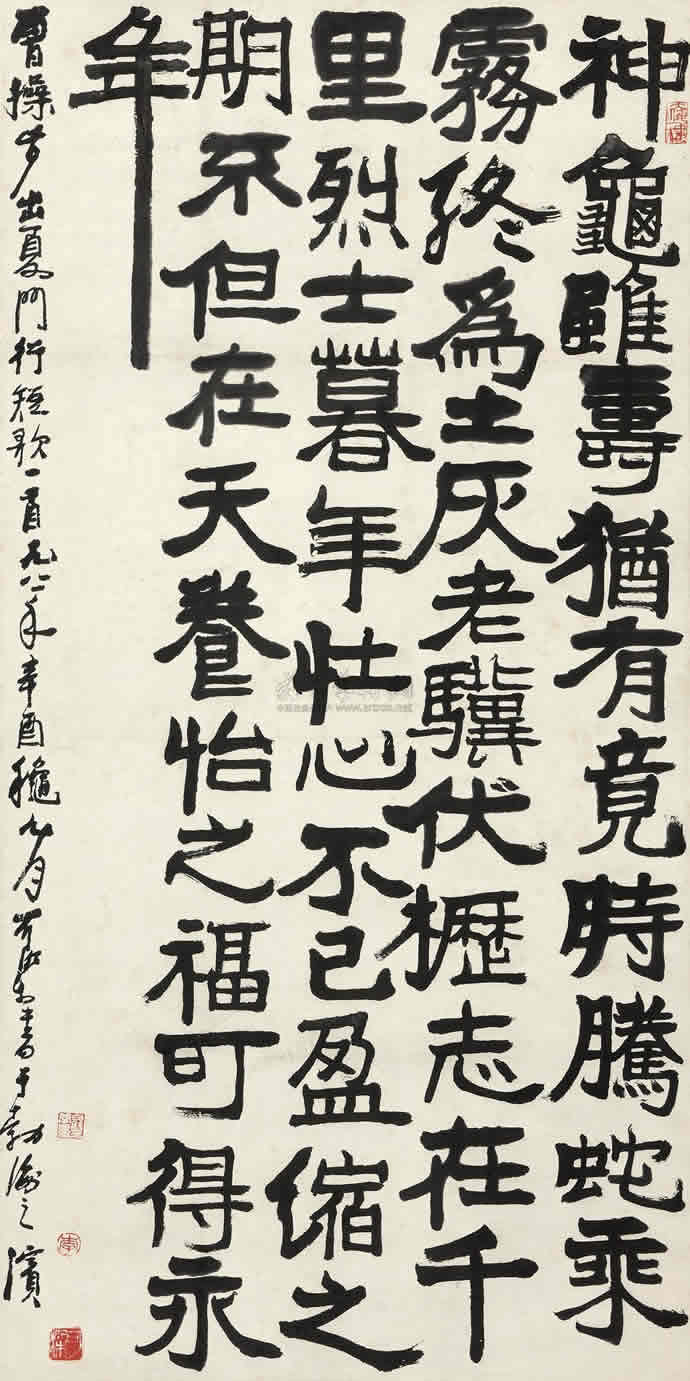 神龜雖壽猶有竟時騰蛇乘
霧終爲土灰老驥伏櫪志在千
里烈士暮年壯心不已盈縮之
期不但在天養怡之福可得永
年
曹操步出夏門行短歌一首一九八一年辛酉龝九月書于勃海之濱